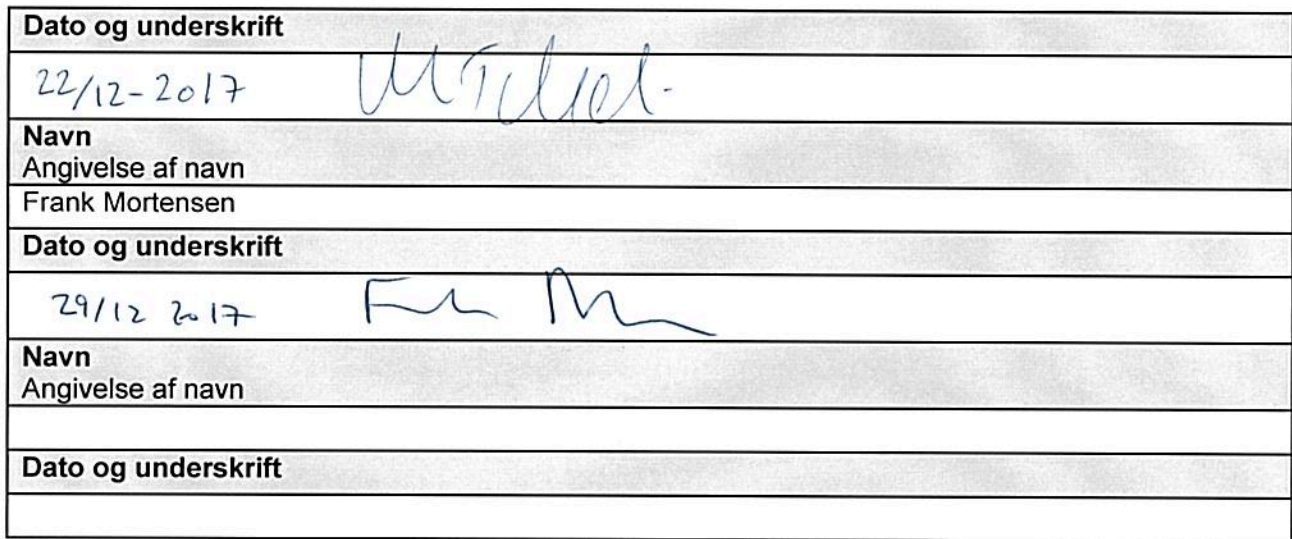 Dato og underskrift
22/12-2017
Navn
Angivelse af navn
Frank Mortensen
Dato og underskrift
29/12 2017
Navn
Angivelse af navn
Dato og underskrift